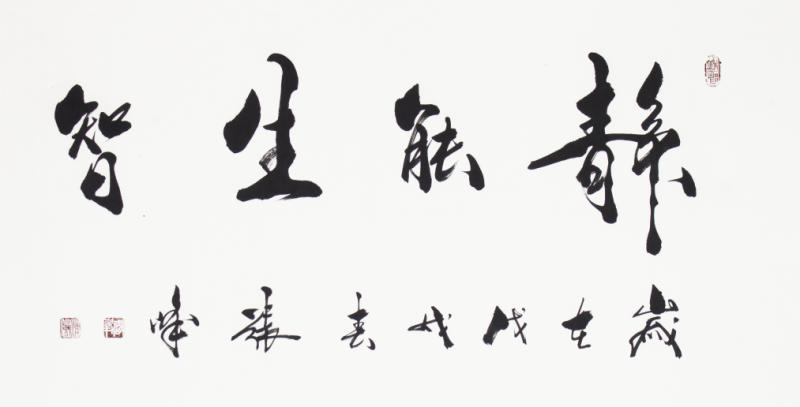 静能生智
歲在戊戌春張峰